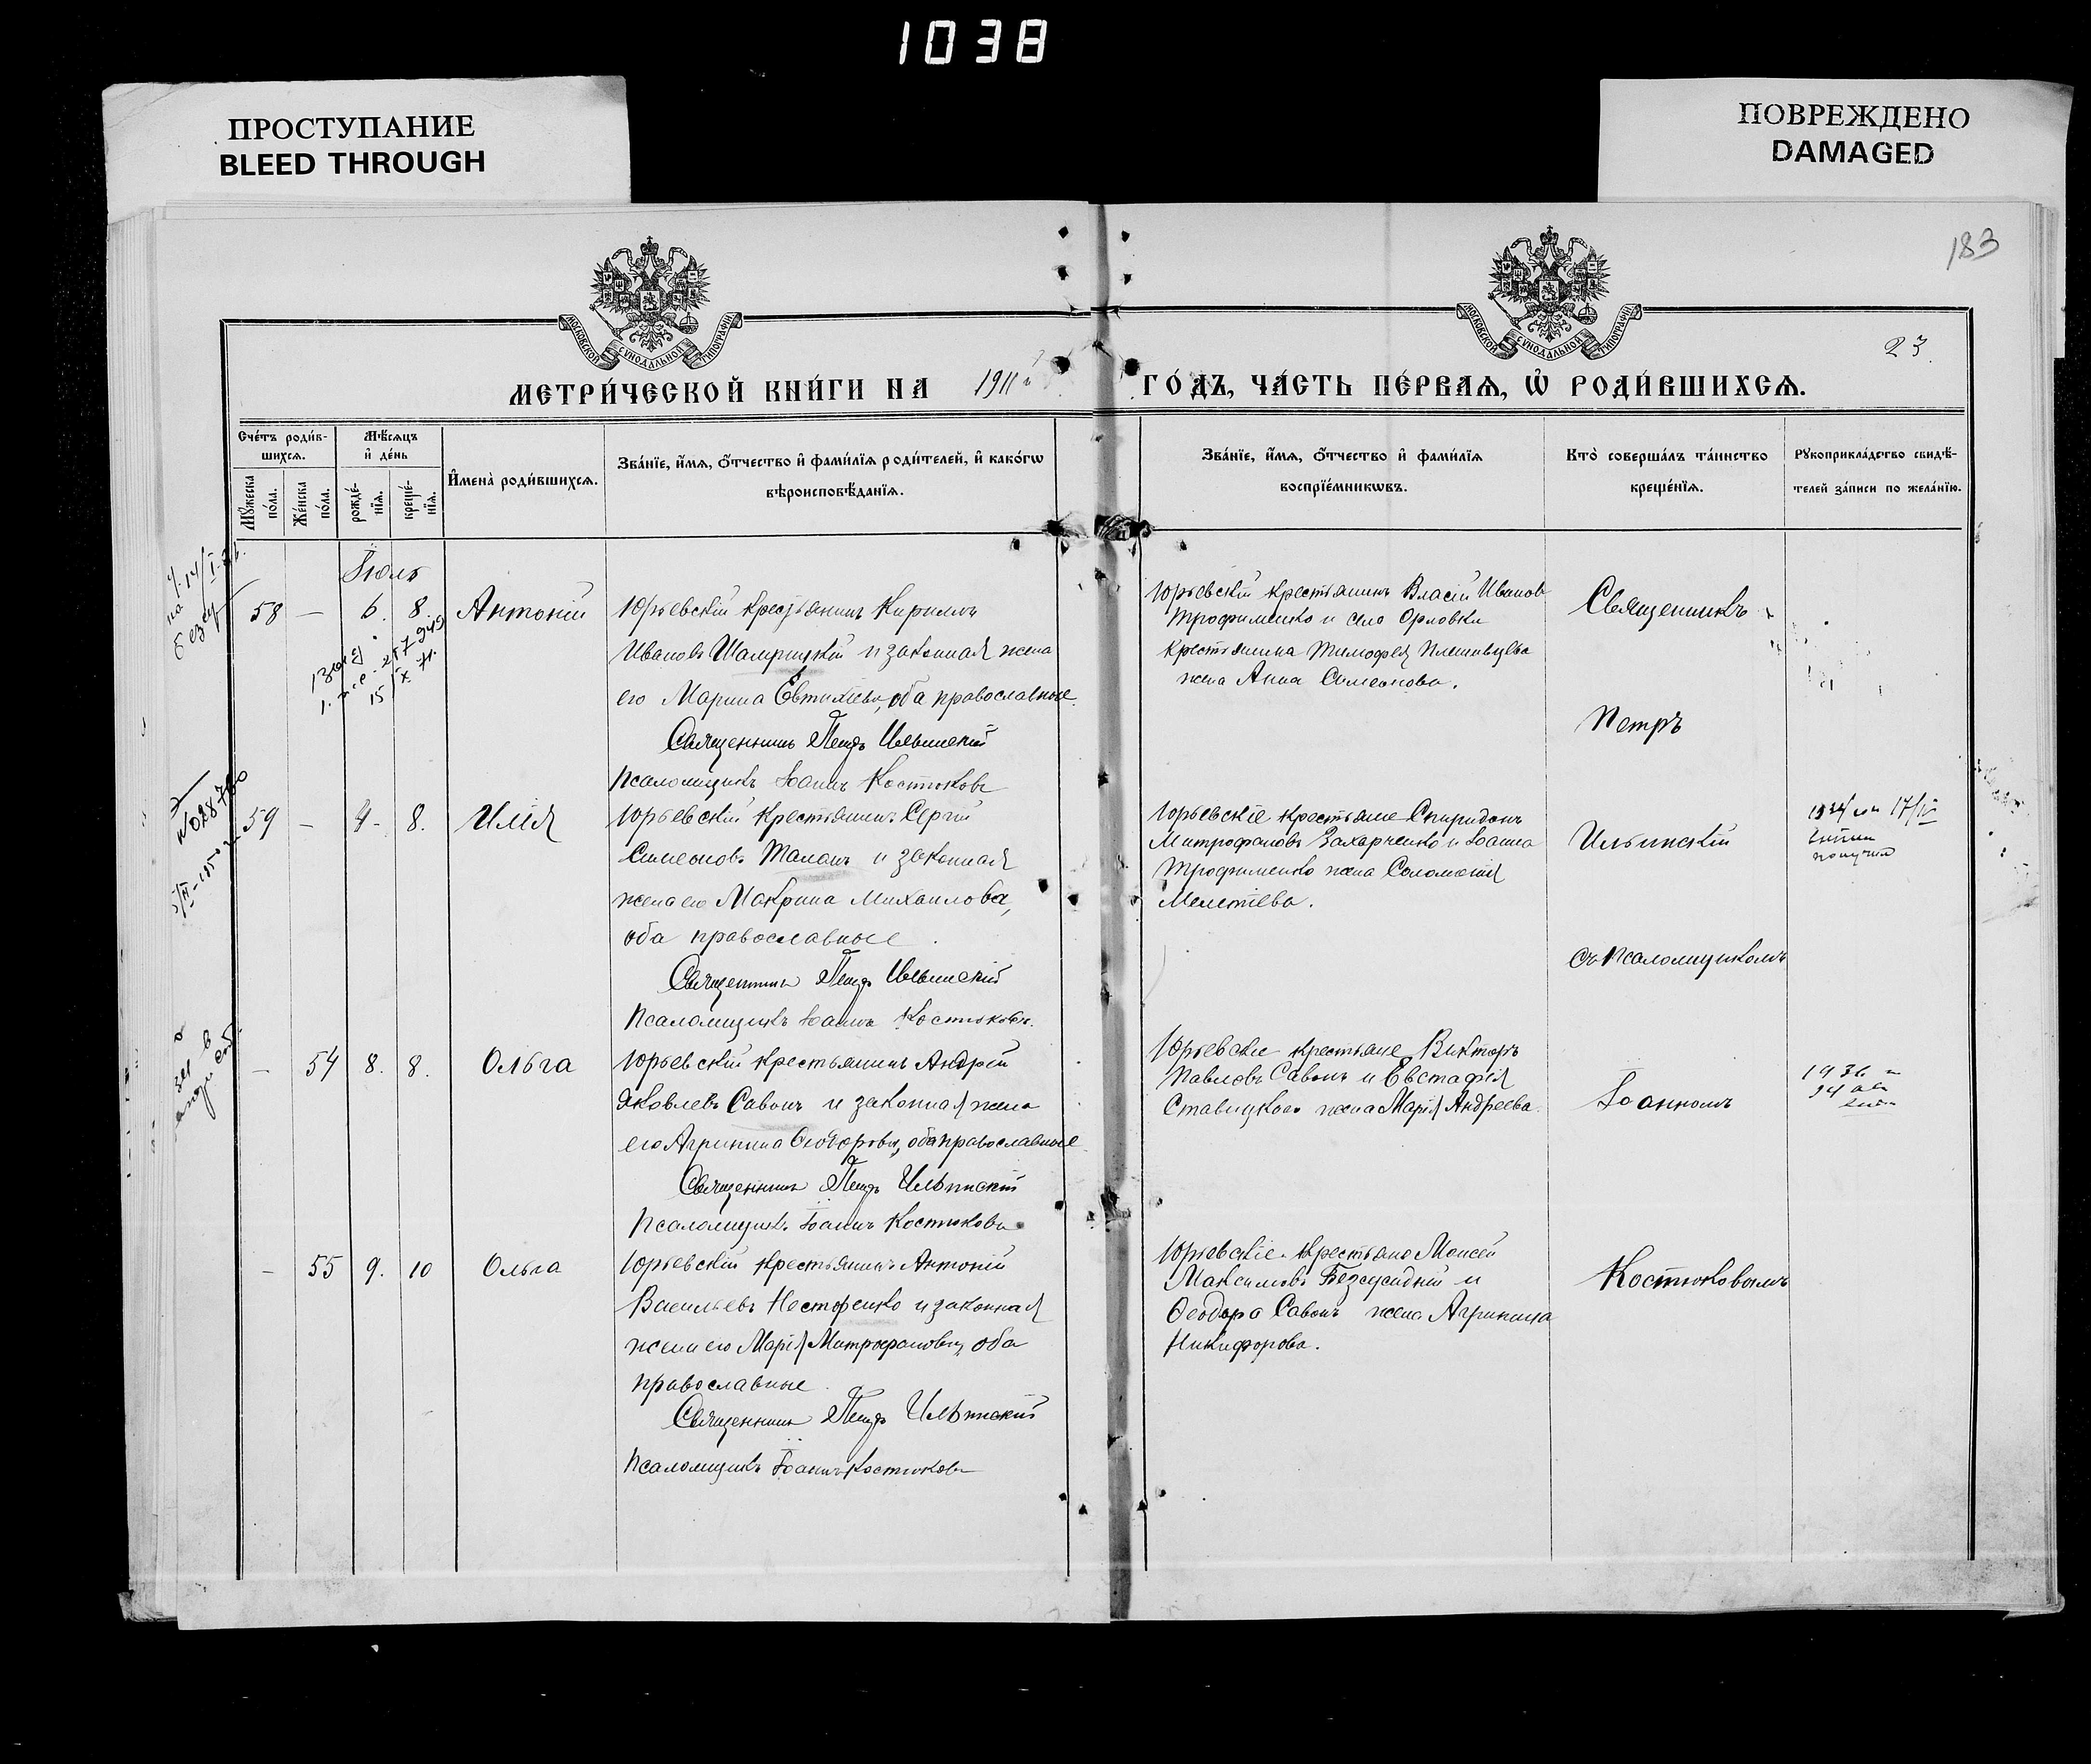 1038
ПРОСТУПАНИЕ
BLEED THROUGH
ПОВРЕЖДЕНО
DAMAGED
183
МОСКОВСКОЙ СУНОДАЛЬНОЙ ТИПОГРАФІИ
МОСКОВСКОЙ СУНОДАЛЬНОЙ ТИПОГРАФІИ
23.
МЕТРИ́ЧЕСКОЙ КНИ́ГИ НА 1911 й ГО́ДЪ, ЧА́СТЬ ПЕ́РВАѦ, Ѡ҆ РОДИ́ВШИХСѦ.
Сче́тъ роди́в-
шихсѧ.
Мꙋ́жеска
по́ла.
Же́нска
по́ла.
Мѣ́сѧцъ
и҆ де́нь
рожде́-
нїѧ.
креще́-
нїѧ.
И҆мена̀ роди́вшихсѧ.
Зва́нїе, и҆́мѧ, ѻ҆́тчество и҆ фами́лїѧ роди́телей, и҆ како́гѡ
вѣроисповѣ́данїѧ.
Зва́нїе, и҆́мѧ, ѻ҆́тчество и҆ фами́лїѧ
воспрїе́мникѡвъ.
Кто̀ соверша́лъ та́инство
креще́нїѧ.
Рꙋкоприкла́дство свидѣ́-
телей за́писи по жела́нїю.
Іюль
58 — 6. 8. Антоній
Юрьевскій крестьянинъ Кириллъ
Ивановъ и законная жена
его Марина Евтихіева, оба православные.
Священникъ Петръ Ильинскій
Псаломщикъ Іоаннъ Костюковъ
Юрьевскій крестьянинъ Власій Иванов
Трофименко и села Орловки
крестьянина Тимофея
жена Анна Симеонова.
Священникъ
Петръ
59 — 4. 8. Илія
Юрьевскій крестьянинъ Сергій
Симеоновъ Таланъ и законная
жена его Макрина Михаилова,
оба православные.
Священникъ Петръ Ильинскій
Псаломщикъ Іоаннъ Костюковъ.
Юрьевскіе крестьяне Спиридонъ
Митрофановъ Захарченко и Іоанна
Трофименко жена Соломонія
Мелетіева.
Ильинскій
съ псаломщикомъ
17/IV
— 54 8. 8. Ольга
Юрьевскій крестьянинъ Андрей
Яковлевъ Савонъ и законная жена
его Агрипина Ѳеодорова, оба православные.
Священникъ Петръ Ильинскій
Псаломщикъ Іоаннъ Костюковъ
Юрьевскіе крестьяне Викторъ
Павловъ Савонъ и Евстафія
Ставицкого жена Марія Андреева.
Іоанномъ
— 55 9. 10 Ольга
Юрьевскій крестьянинъ Антоній
Васильевъ и законная
жена его Марія Митрофанова, оба
православные.
Священникъ Петръ Ильинскій
Псаломщикъ Іоаннъ Костюковъ
Юрьевскіе крестьяне Моисей
Максимовъ и
Ѳеодора Савонъ жена Агрипина
Никифорова.
Костюковымъ